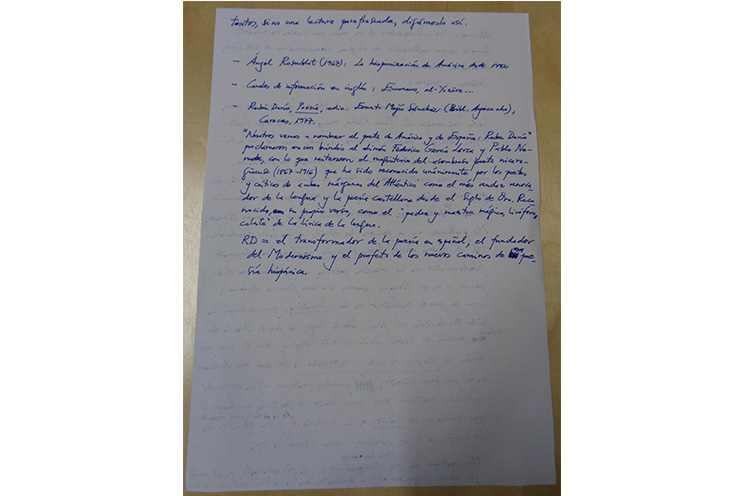 textos, sino una lectura parafraseada, digámoslo así.
- Ángel Rosenblat (1964): La hispanización de América desde 1492.
- Canales de información en inglés: Euronews, al-Yazira...
- Rubén Darío, Poesía, edic. Ernesto Mejía Sánchez (Bibl. Ayacucho),
Caracas, 1977.
"Nosotros vamos a nombrar al poeta de América y de España: Rubén Darío"
proclamaron en su brindis al alimón Federico García Lorca y Pablo Ne-
ruda, con lo que reiteraron el magisterio del nicara-
güense (1867-1916) que ha sido reconocido unánimemente por los poetas
y críticos de ambas márgenes del Atlántico como el más audaz
dor de la lengua y la poesía castellana desde el Siglo de Oro. Reco-
nocido, en su propio verbo, como el "padre y maestro mágico, liróforo
celeste" de la lírica de la lengua.
RD = el transformador de la poesía en español, el fundador
del Modernismo y el profeta de los nuevos caminos de poe-
sía hispánica.